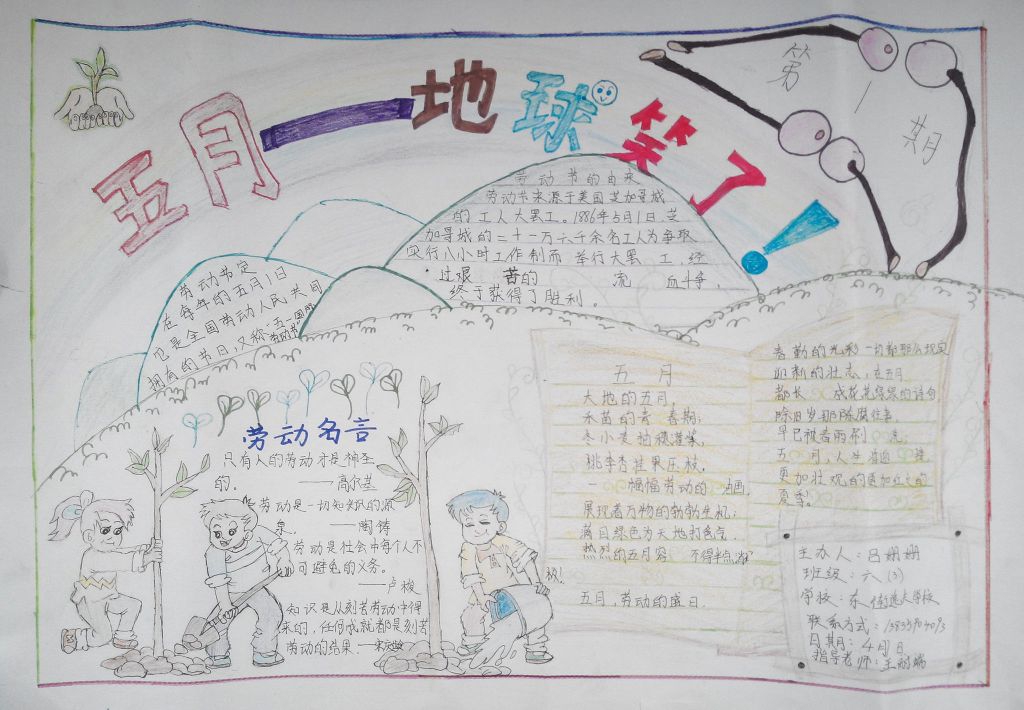 五月
一
地球笑了!
第
一
期
劳动节的由来
劳动节来源于美国芝加哥城
的工人大罢工。1886年5月1日,芝
加哥城的二十一万六千余名工人为争取
实行八小时工作制而举行大罢工,经
过艰苦的流血斗争,
终于获得了胜利。
劳动节定
在每年的五月1日
它是全国劳动人民共同
拥有的节日,又称"五一国际
劳动节
劳动名言
只有人的劳动才是神圣
的。——高尔基
劳动是一切知识的源
泉。——陶铸
劳动是社会中每个人不
可避免的义务。
——卢梭
知识是从刻苦劳动中得
来的,任何成就都是刻苦
劳动的结果。——宋庆龄
五月
大地的五月,
禾苗的青春期;
冬小麦抽穗灌浆,
桃李杏挂果压枝,
一幅幅劳动的油画,
展现着万物的勃勃生机;
满目绿色为大地打色气
热烈的五月容不得半点
极!
五月,劳动的盛日,
春勤的光彩一切都那么现实
迎新的壮志,在五月
都长成花花绿绿的诗句,
除旧岁那陈腐往事,
早已被春雨刷洗
五月,人生
更加壮观的更加
夏季!
主办人:吕姗姗
班级:六(3)
学校:东街逸夫学校
联系方式:
日期:4月日
指导老师:王